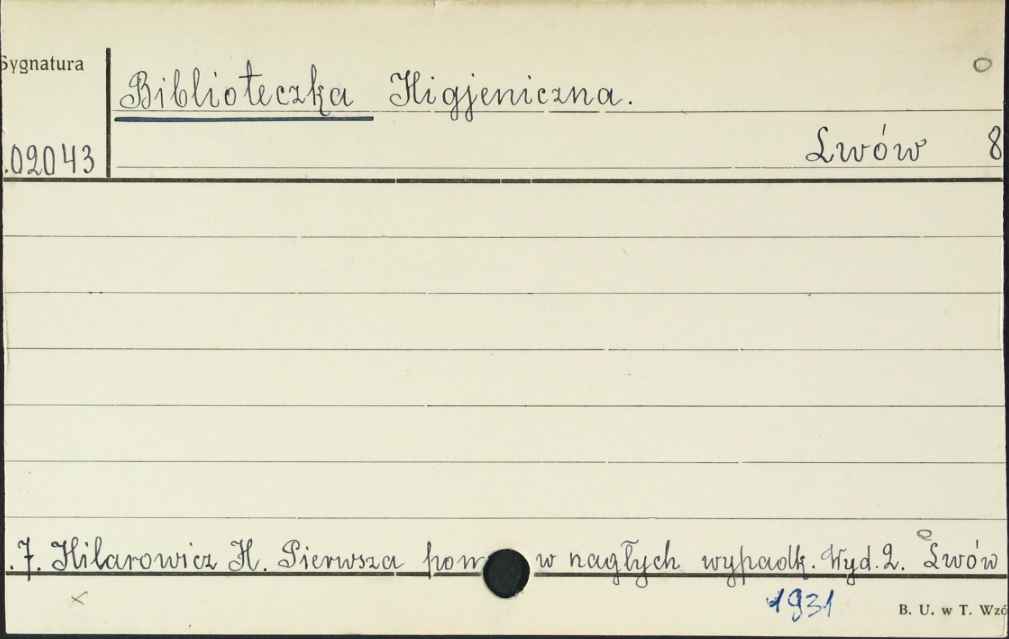 Sygnatura
Biblioteczka Higjeniczna.
Lwów 8
.02043
.7. Hilarowicz H. Pierwsza w nagłych wypadk. Wyd. 2. Lwów
1931
B. U. w T.